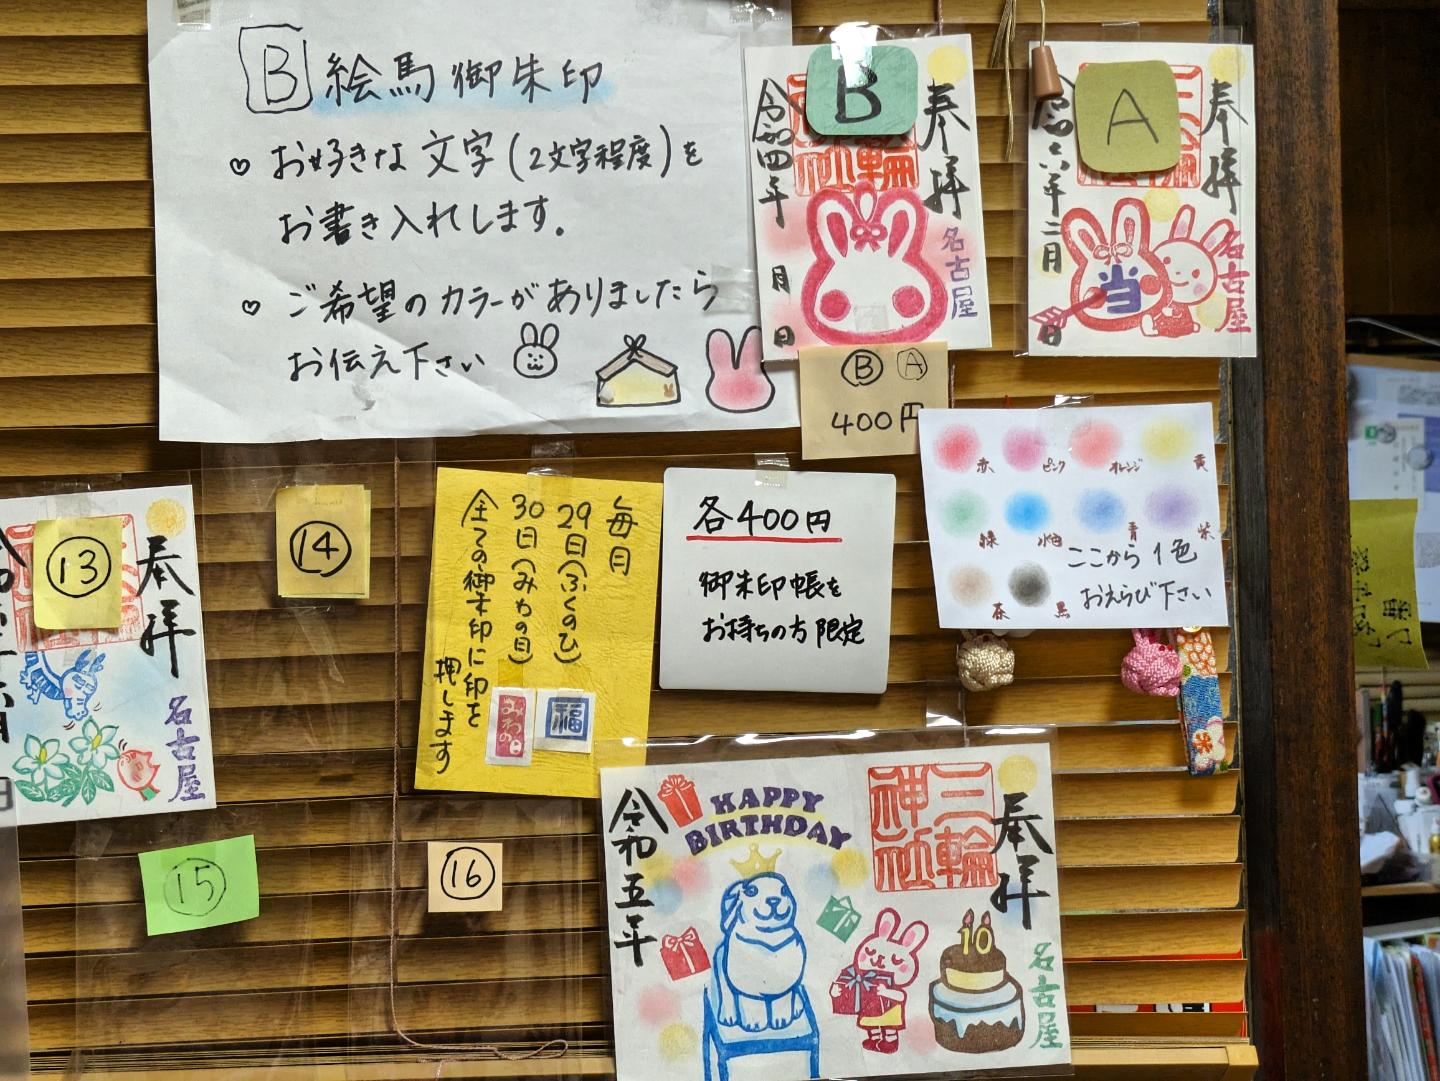 B 絵馬御朱印
♡ お好きな文字(2文字程度)を
お書き入れします。
♡ ご希望のカラーがありましたら
お伝え下さい
B
奉拝
令和四年 月 日
名古屋
A
奉拝
令和六年二月 日
名古屋
当
Ⓑ Ⓐ
400円
赤 ピンク オレンジ 黄
緑 水色 青 紫
茶 黒
ここから1色
おえらび下さい
⑬
奉拝
名古屋
⑭
毎月
29日(ふくのひ)
30日(みわの日)
全ての御朱印に印を
押します
福
みわの日
各400円
御朱印帳を
お持ちの方限定
⑮
⑯
奉拝
三輪
神社
HAPPY
BIRTHDAY
令和五年
10
名古屋